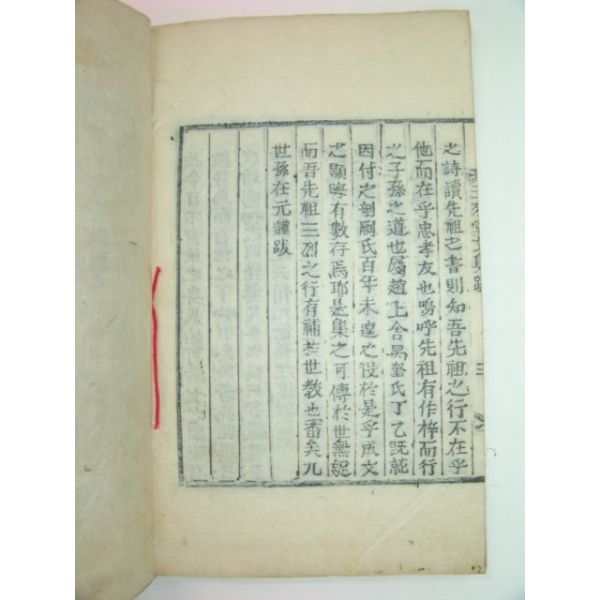 之詩讀先祖之書則知吾先祖之行不在乎
他而在乎忠孝友也嗚呼先祖有作梓而行
之子孫之道也屬趙上舍禺奎氏丁乙旣訖
因付之剞劂氏百年未遑之役於是乎成文
之顯晦有數存焉耶是集之可傳於世無疑
而吾先祖三烈之行有補於世敎也審矣九
世孫在元謹跋
三